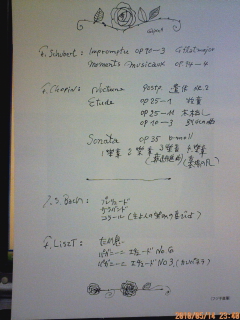 F. Schubert: Impromptu OP 90-3 G flat major
Moments Musicaux OP. 94-4
F. Chopin: Nocturne 遺作
Etude OP 25-1 牧童
OP 25-11 木枯し
OP 10-3 別れの曲
Sonata OP 35 b-moll
1楽章 2楽章 3楽章 4楽章
(葬送行進曲)
J. S. Bach:
コラール (主よ人の望みの喜びよ)
F. Liszt:
パガニーニ エチュード No. 6
パガニーニ エチュード NO 3 (カンパネラ)
2010/05/14 23:48